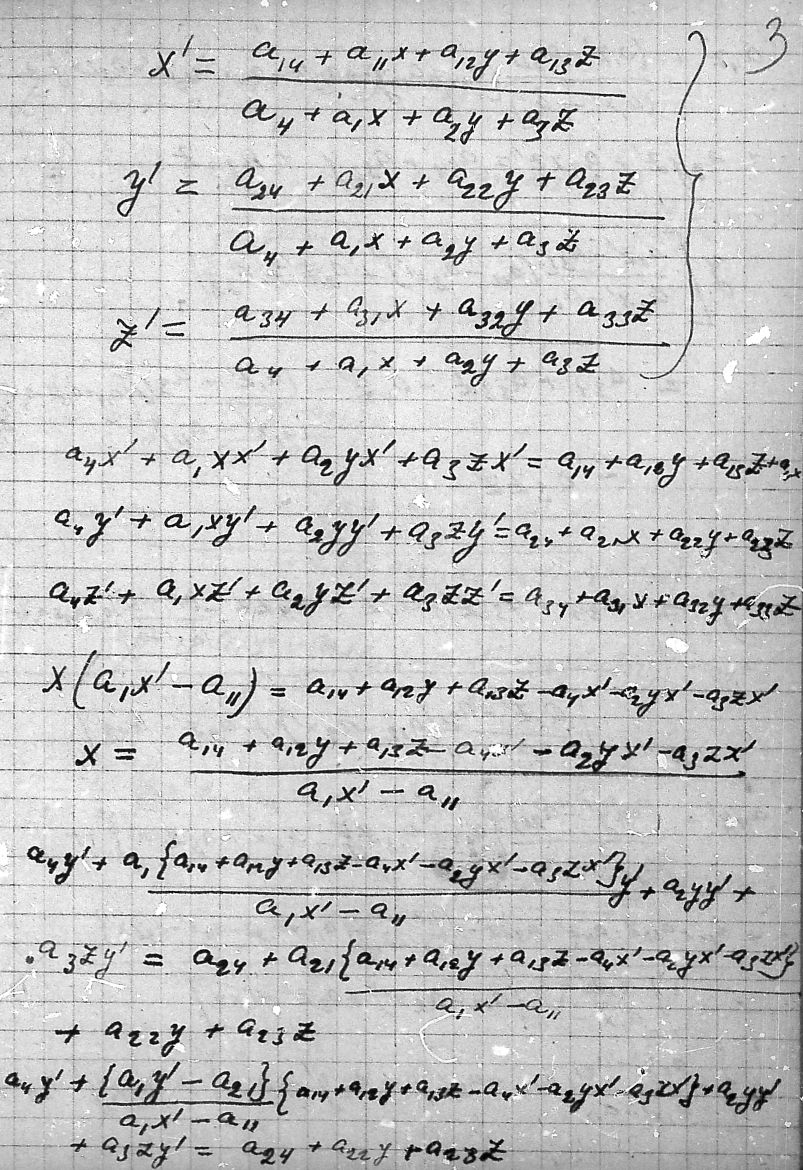 3
x' = (a₁₄ + a₁₁x + a₁₂y + a₁₃z) / (a₄ + a₁x + a₂y + a₃z)
y' = (a₂₄ + a₂₁x + a₂₂y + a₂₃z) / (a₄ + a₁x + a₂y + a₃z)
z' = (a₃₄ + a₃₁x + a₃₂y + a₃₃z) / (a₄ + a₁x + a₂y + a₃z)
a₄x' + a₁xx' + a₂yx' + a₃zx' = a₁₄ + a₁₂y + a₁₃z + a₁₁x
a₄y' + a₁xy' + a₂yy' + a₃zy' = a₂₄ + a₂₁x + a₂₂y + a₂₃z
a₄z' + a₁xz' + a₂yz' + a₃zz' = a₃₄ + a₃₁x + a₃₂y + a₃₃z
x(a₁x' − a₁₁) = a₁₄ + a₁₂y + a₁₃z − a₄x' − a₂yx' − a₃zx'
x = (a₁₄ + a₁₂y + a₁₃z − a₄x' − a₂yx' − a₃zx') / (a₁x' − a₁₁)
a₄y' + a₁{a₁₄ + a₁₂y + a₁₃z − a₄x' − a₂yx' − a₃zx'}y' / (a₁x' − a₁₁) + a₂yy' +
a₃zy' = a₂₄ + a₂₁{a₁₄ + a₁₂y + a₁₃z − a₄x' − a₂yx' − a₃zx'} / (a₁x' − a₁₁)
+ a₂₂y + a₂₃z
a₄y' + {a₁y' − a₂₁} / (a₁x' − a₁₁) {a₁₄ + a₁₂y + a₁₃z − a₄x' − a₂yx' − a₃zx'} + a₂yy'
+ a₃zy' = a₂₄ + a₂₂y + a₂₃z